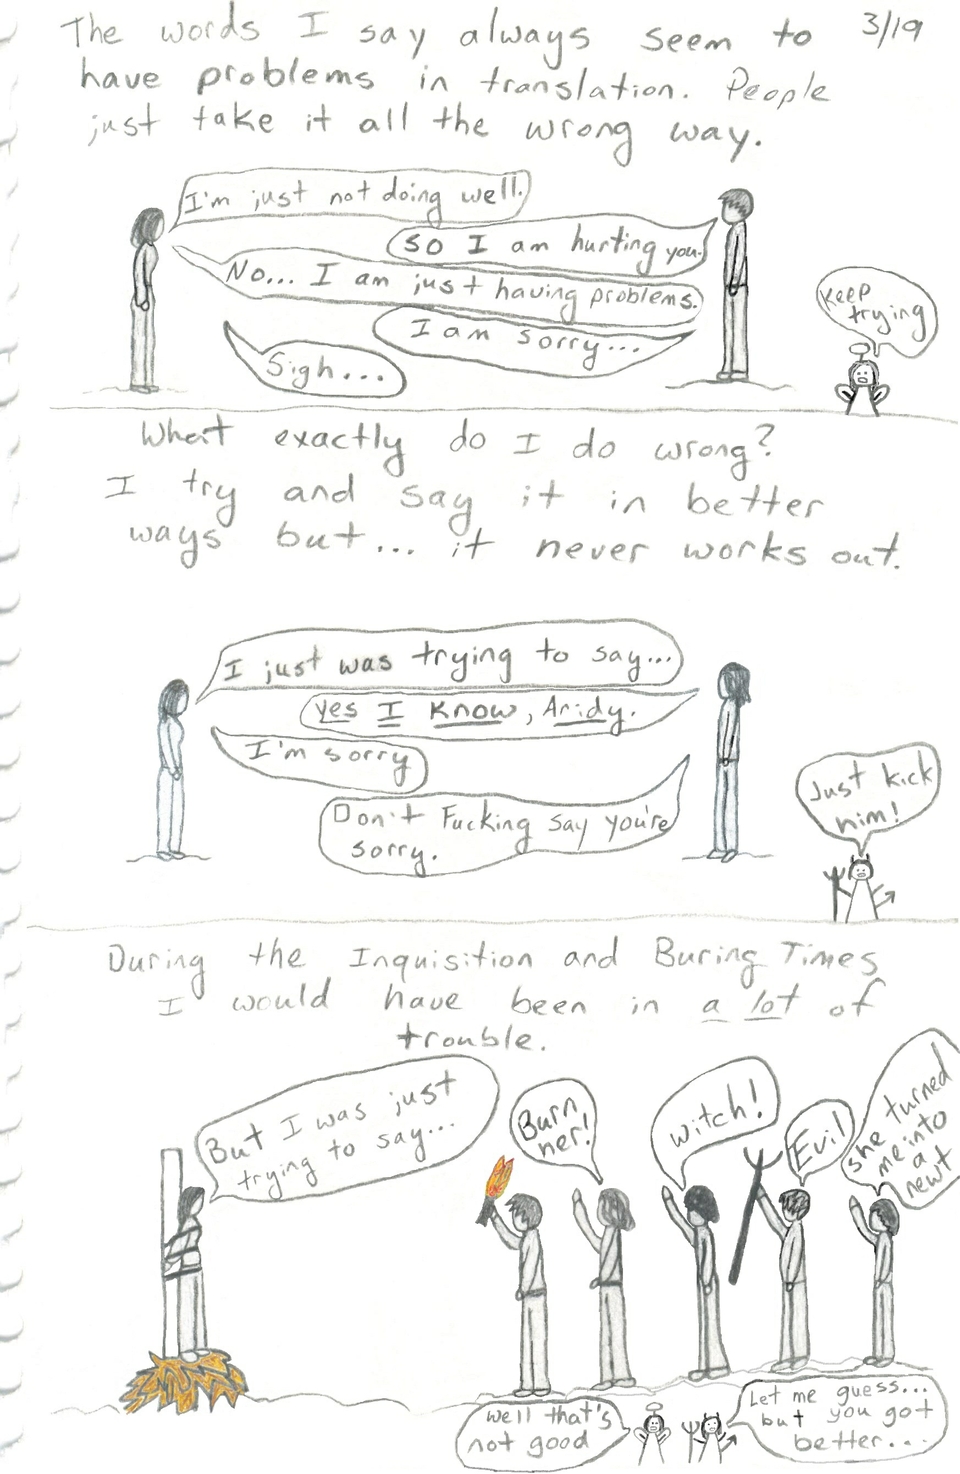 The words I say always seem to 3/19
have problems in translation. People
just take it all the wrong way.
I'm just not doing well.
SO I am hurting you.
No... I am just having problems.
I am sorry...
Sigh...
Keep
trying
What exactly do I do wrong?
I try and say it in better
ways but... it never works out.
I just was trying to say...
yes I know, Aridy.
I'm sorry
Don't Fucking say you're
sorry.
Just kick
him!
During the Inquisition and Buring Times
I would have been in a lot of
trouble.
But I was just
trying to say...
Burn
her!
witch!
Evil
she turned
me into
a
newt
well that's
not good
Let me guess...
but you got
better...